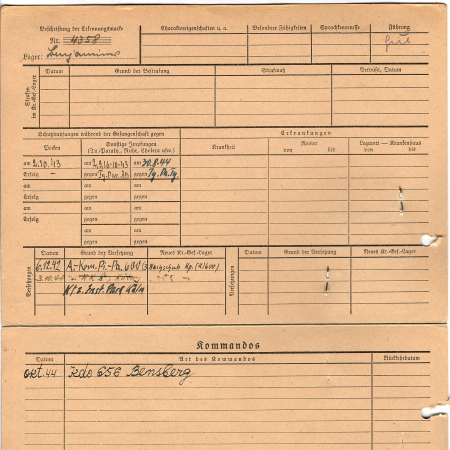 Beschriftung der Erkennungsmarke
Nr. 4358
Lager: Benjamino
Charaktereigenschaften u. a.
Besondere Fähigkeiten
Sprachkenntnisse
Führung
gut
Strafen im Kr.-Gef.-Lager
Datum Grund der Bestrafung Strafmaß Verbüßt, Datum
Schutzimpfungen während der Gefangenschaft gegen
Erkrankungen
Pocken
Sonstige Impfungen
(Ty./Paraty., Ruhr, Cholera usw.)
Krankheit
Revier
von bis
Lazarett — Krankenhaus
von bis
am 2.10.43 am 2,9,16-10-43 am 30.8.44
Erfolg - gegen Ty. Par. gegen Ty. Pa. Ty.
am am am
Erfolg gegen gegen
am am am
Erfolg gegen gegen
am am
gegen gegen
Versetzungen
Datum Grund der Versetzung Neues Kr.-Gef.-Lager
Versetzungen
Datum Grund der Versetzung Neues Kr.-Gef.-Lager
6.12.42 A.-Kom. Pi.-Pa. 600
Kfz. Inst. Park Köln
Kommandos
Datum Art des Kommandos Rückkehrdatum
Okt. 44 Kdo 656 Bensberg